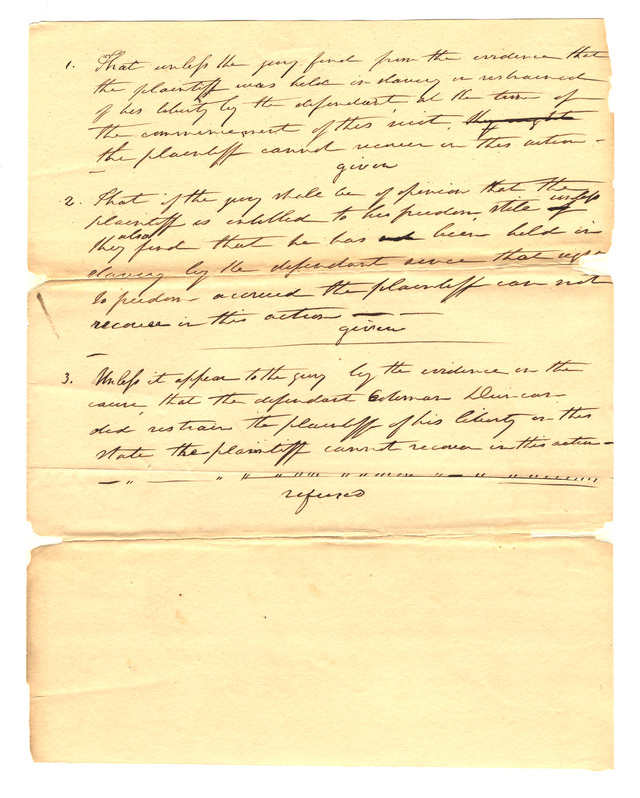 1. That unless the jury find from the evidence that
the plaintiff was held in slavery or restrained
of his liberty by the defendant at the time of
the commencement of this suit, they ought to
the plaintiff cannot recover in this action –
given
2. That if the jury shall be of opinion that the
plaintiff is entitled to his freedom, still unless
they also find that he has been held in
slavery by the defendant since that
to freedom – accrued the plaintiff can not
recover in this action – –
given
3. Unless it appear to the jury by the evidence in the
cause, that the defendant Coleman Duncan –
did restrain the plaintiff of his liberty in this
state the plaintiff cannot recover in this action –
refused